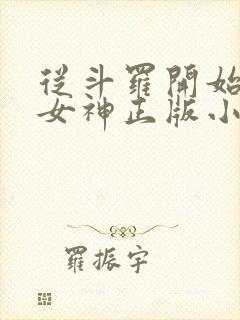 從斗羅開始
女神正版小
羅振宇